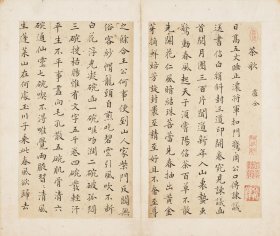 茶歌
盧仝
日高五丈睡正濃將軍扣門驚周公口傳諫議
送書信白絹斜封三道印開緘宛見諫議面
首閱月團三百片聞道新年入山裏蟄蟲
驚動春風起天子須嘗陽羨茶百草不敢
先開花仁風暗結珠蓓蕾先春抽出黃金
芽摘鮮焙芳旋封裹至精至好且不奢至尊
之餘合王公何事便到山人家柴門反關無
俗客紗帽籠頭自煎吃碧雲引風吹不斷
白花浮光凝碗面一碗喉吻潤二碗破孤悶
三碗搜枯腸惟有文字五千卷四碗發輕汗
平生不平事盡向毛孔散五碗肌骨清六
碗通仙靈七碗喫不得唯覺兩腋習習清風
生蓬萊山在何處玉川子乘此春風欲歸去